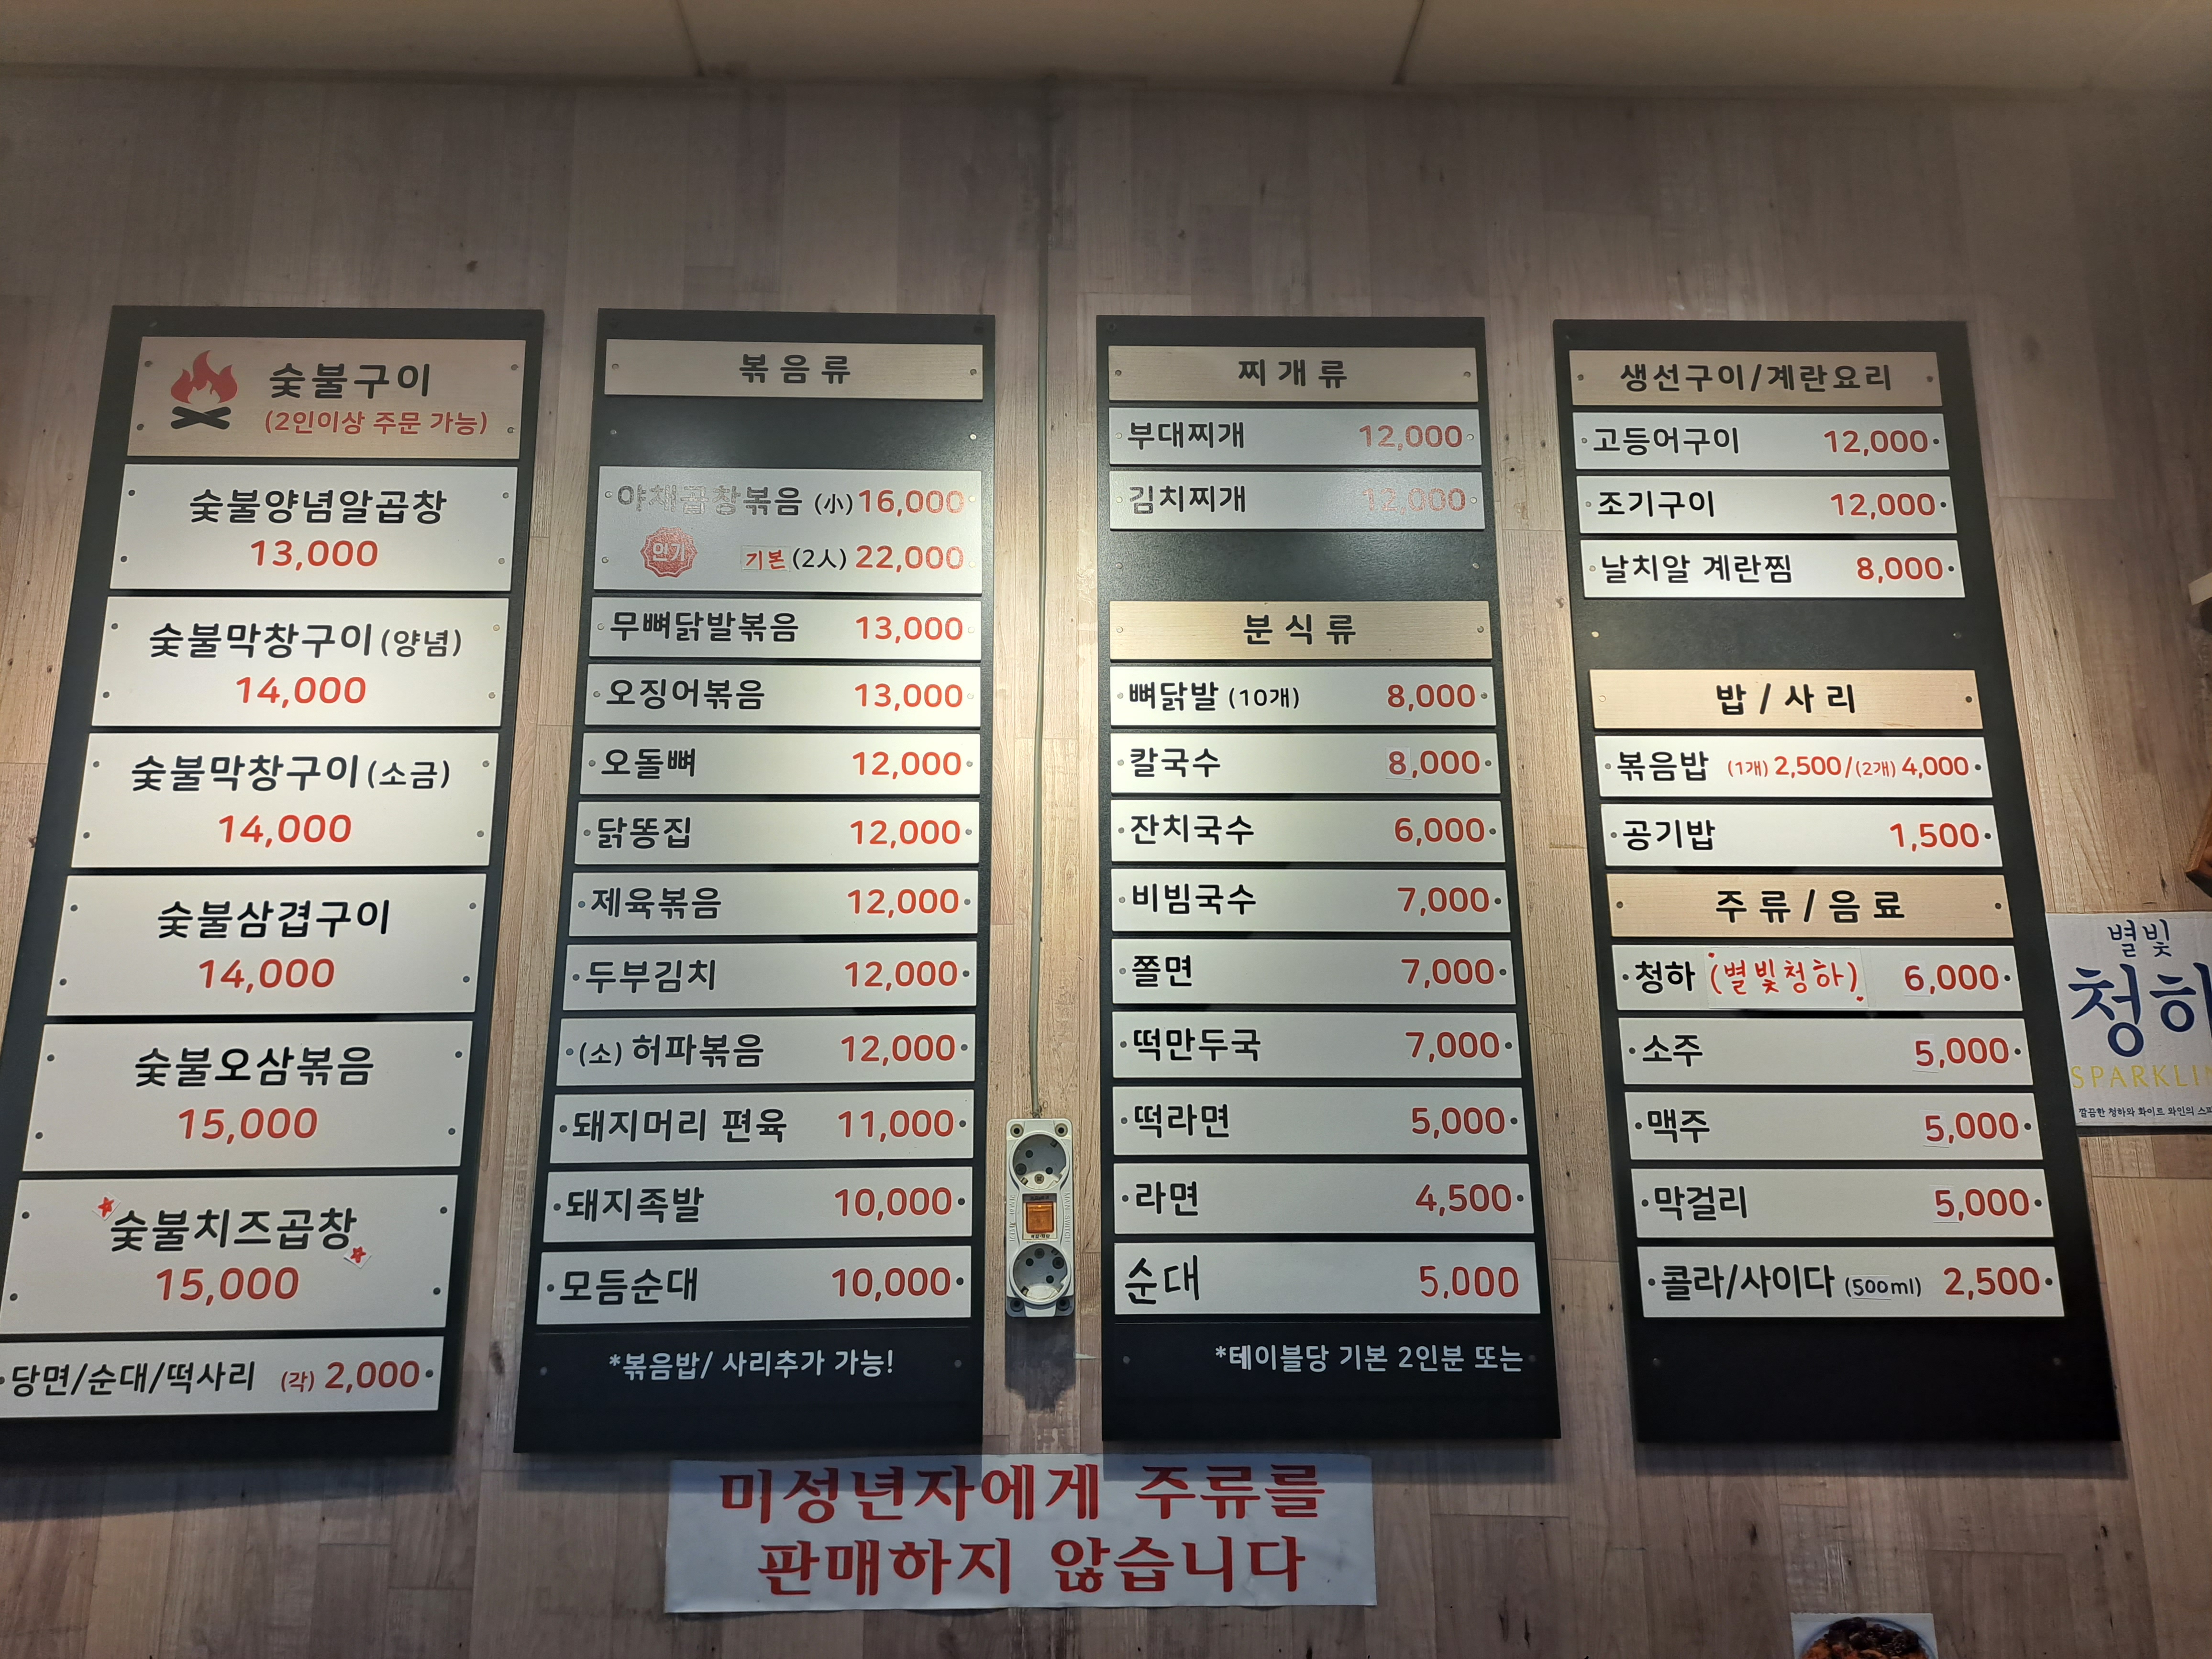 숯불구이
(2인이상 주문 가능)
숯불양념알곱창
13,000
숯불막창구이(양념)
14,000
숯불막창구이(소금)
14,000
숯불삼겹구이
14,000
숯불오삼볶음
15,000
숯불치즈곱창
15,000
당면/순대/떡사리 (각) 2,000
볶음류
야채곱창볶음 (小) 16,000
인기 기본 (2人) 22,000
무뼈닭발볶음 13,000
오징어볶음 13,000
오돌뼈 12,000
닭똥집 12,000
제육볶음 12,000
두부김치 12,000
(소) 허파볶음 12,000
돼지머리 편육 11,000
돼지족발 10,000
모듬순대 10,000
*볶음밥/ 사리추가 가능!
찌개류
부대찌개 12,000
김치찌개 12,000
분식류
뼈닭발 (10개) 8,000
칼국수 8,000
잔치국수 6,000
비빔국수 7,000
쫄면 7,000
떡만두국 7,000
떡라면 5,000
라면 4,500
순대 5,000
*테이블당 기본 2인분 또는
생선구이/계란요리
고등어구이 12,000
조기구이 12,000
날치알 계란찜 8,000
밥/사리
볶음밥 (1개) 2,500/(2개) 4,000
공기밥 1,500
주류/음료
청하 (별빛청하) 6,000
소주 5,000
맥주 5,000
막걸리 5,000
콜라/사이다 (500ml) 2,500
별빛
청하
깔끔한 청하와 화이트 와인의
미성년자에게 주류를
판매하지 않습니다